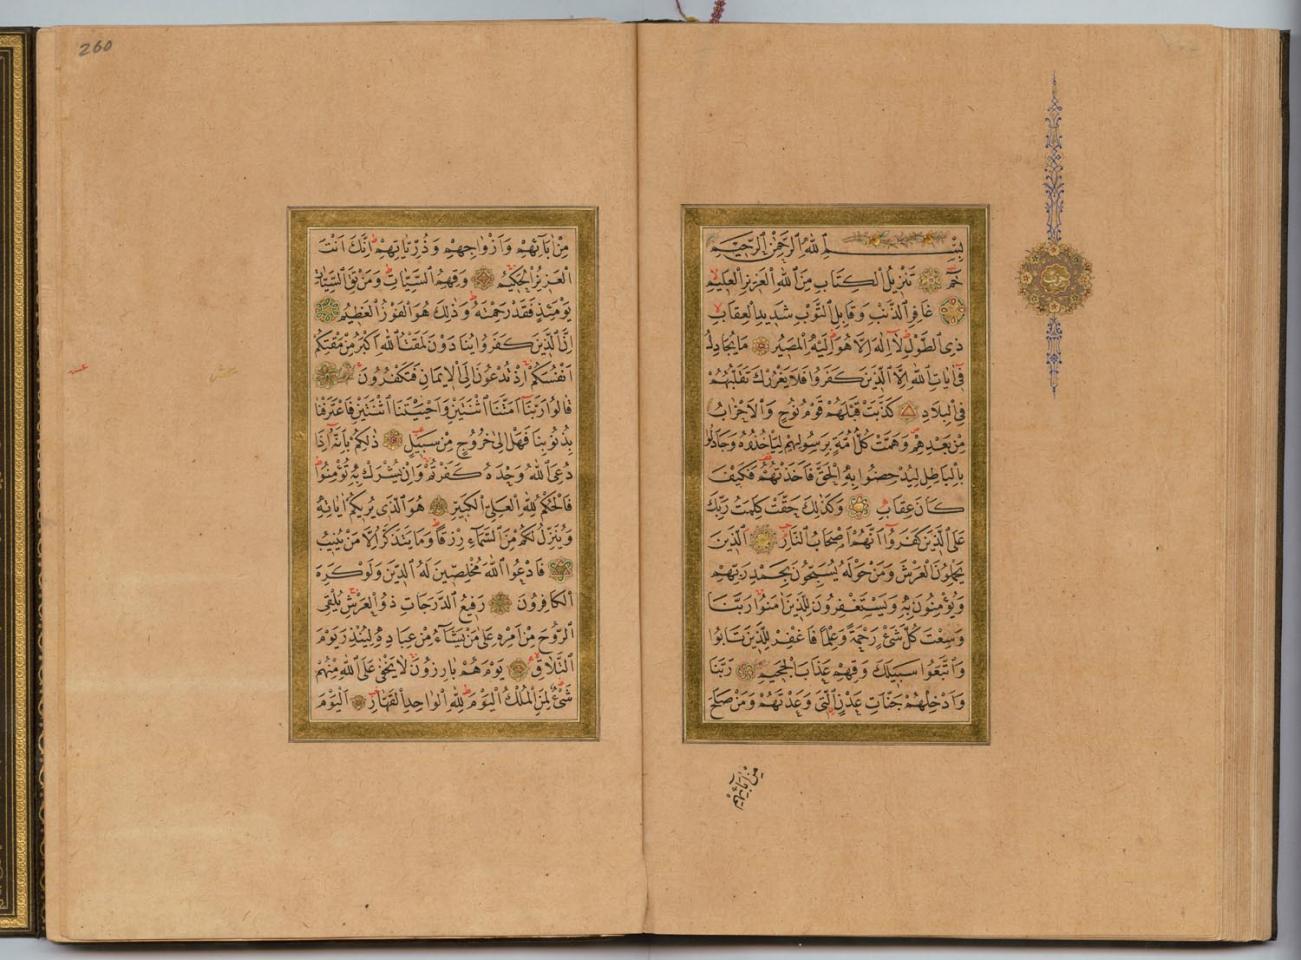 بِسْمِ اللّٰهِ الرَّحْمٰنِ الرَّحِيمِ
حٰمٓ تَنْزِيلُ الْكِتَابِ مِنَ اللّٰهِ الْعَزِيزِ الْعَلِيمِ
غَافِرِ الذَّنْبِ وَقَابِلِ التَّوْبِ شَدِيدِ الْعِقَابِ
ذِى الطَّوْلِ لَآ اِلٰهَ اِلَّا هُوَ اِلَيْهِ الْمَصِيرُ مَا يُجَادِلُ
فِىٓ اٰيَاتِ اللّٰهِ اِلَّا الَّذِينَ كَفَرُوا فَلَا يَغْرُرْكَ تَقَلُّبُهُمْ
فِى الْبِلَادِ كَذَّبَتْ قَبْلَهُمْ قَوْمُ نُوحٍ وَالْاَحْزَابُ
مِنْ بَعْدِهِمْ وَهَمَّتْ كُلُّ اُمَّةٍ بِرَسُولِهِمْ لِيَأْخُذُوهُ وَجَادَلُوا
بِالْبَاطِلِ لِيُدْحِضُوا بِهِ الْحَقَّ فَاَخَذْتُهُمْ فَكَيْفَ
كَانَ عِقَابِ وَكَذٰلِكَ حَقَّتْ كَلِمَتُ رَبِّكَ
عَلَى الَّذِينَ كَفَرُوٓا اَنَّهُمْ اَصْحَابُ النَّارِ اَلَّذِينَ
يَحْمِلُونَ الْعَرْشَ وَمَنْ حَوْلَهُ يُسَبِّحُونَ بِحَمْدِ رَبِّهِمْ
وَيُؤْمِنُونَ بِهِ وَيَسْتَغْفِرُونَ لِلَّذِينَ اٰمَنُوا رَبَّنَا
وَسِعْتَ كُلَّ شَىْءٍ رَحْمَةً وَعِلْمًا فَاغْفِرْ لِلَّذِينَ تَابُوا
وَاتَّبَعُوا سَبِيلَكَ وَقِهِمْ عَذَابَ الْجَحِيمِ رَبَّنَا
وَاَدْخِلْهُمْ جَنَّاتِ عَدْنٍ الَّتِى وَعَدْتَهُمْ وَمَنْ صَلَحَ
مِنْ اٰبَآئِهِمْ
260
مِنْ اٰبَآئِهِمْ وَاَزْوَاجِهِمْ وَذُرِّيَّاتِهِمْ اِنَّكَ اَنْتَ
الْعَزِيزُ الْحَكِيمُ وَقِهِمُ السَّيِّئَاتِ وَمَنْ تَقِ السَّيِّئَاتِ
يَوْمَئِذٍ فَقَدْ رَحِمْتَهُ وَذٰلِكَ هُوَ الْفَوْزُ الْعَظِيمُ
اِنَّ الَّذِينَ كَفَرُوا يُنَادَوْنَ لَمَقْتُ اللّٰهِ اَكْبَرُ مِنْ مَقْتِكُمْ
اَنْفُسَكُمْ اِذْ تُدْعَوْنَ اِلَى الْاِيمَانِ فَتَكْفُرُونَ
قَالُوا رَبَّنَآ اَمَتَّنَا اثْنَتَيْنِ وَاَحْيَيْتَنَا اثْنَتَيْنِ فَاعْتَرَفْنَا
بِذُنُوبِنَا فَهَلْ اِلٰى خُرُوجٍ مِنْ سَبِيلٍ ذٰلِكُمْ بِاَنَّهُٓ اِذَا
دُعِىَ اللّٰهُ وَحْدَهُ كَفَرْتُمْ وَاِنْ يُشْرَكْ بِهِ تُؤْمِنُوا
فَالْحُكْمُ لِلّٰهِ الْعَلِىِّ الْكَبِيرِ هُوَ الَّذِى يُرِيكُمْ اٰيَاتِهِ
وَيُنَزِّلُ لَكُمْ مِنَ السَّمَآءِ رِزْقًا وَمَا يَتَذَكَّرُ اِلَّا مَنْ يُنِيبُ
فَادْعُوا اللّٰهَ مُخْلِصِينَ لَهُ الدِّينَ وَلَوْ كَرِهَ
الْكَافِرُونَ رَفِيعُ الدَّرَجَاتِ ذُو الْعَرْشِ يُلْقِى
الرُّوحَ مِنْ اَمْرِهِ عَلٰى مَنْ يَشَآءُ مِنْ عِبَادِهِ لِيُنْذِرَ يَوْمَ
التَّلَاقِ يَوْمَ هُمْ بَارِزُونَ لَا يَخْفٰى عَلَى اللّٰهِ مِنْهُمْ
شَىْءٌ لِمَنِ الْمُلْكُ الْيَوْمَ لِلّٰهِ الْوَاحِدِ الْقَهَّارِ اَلْيَوْمَ